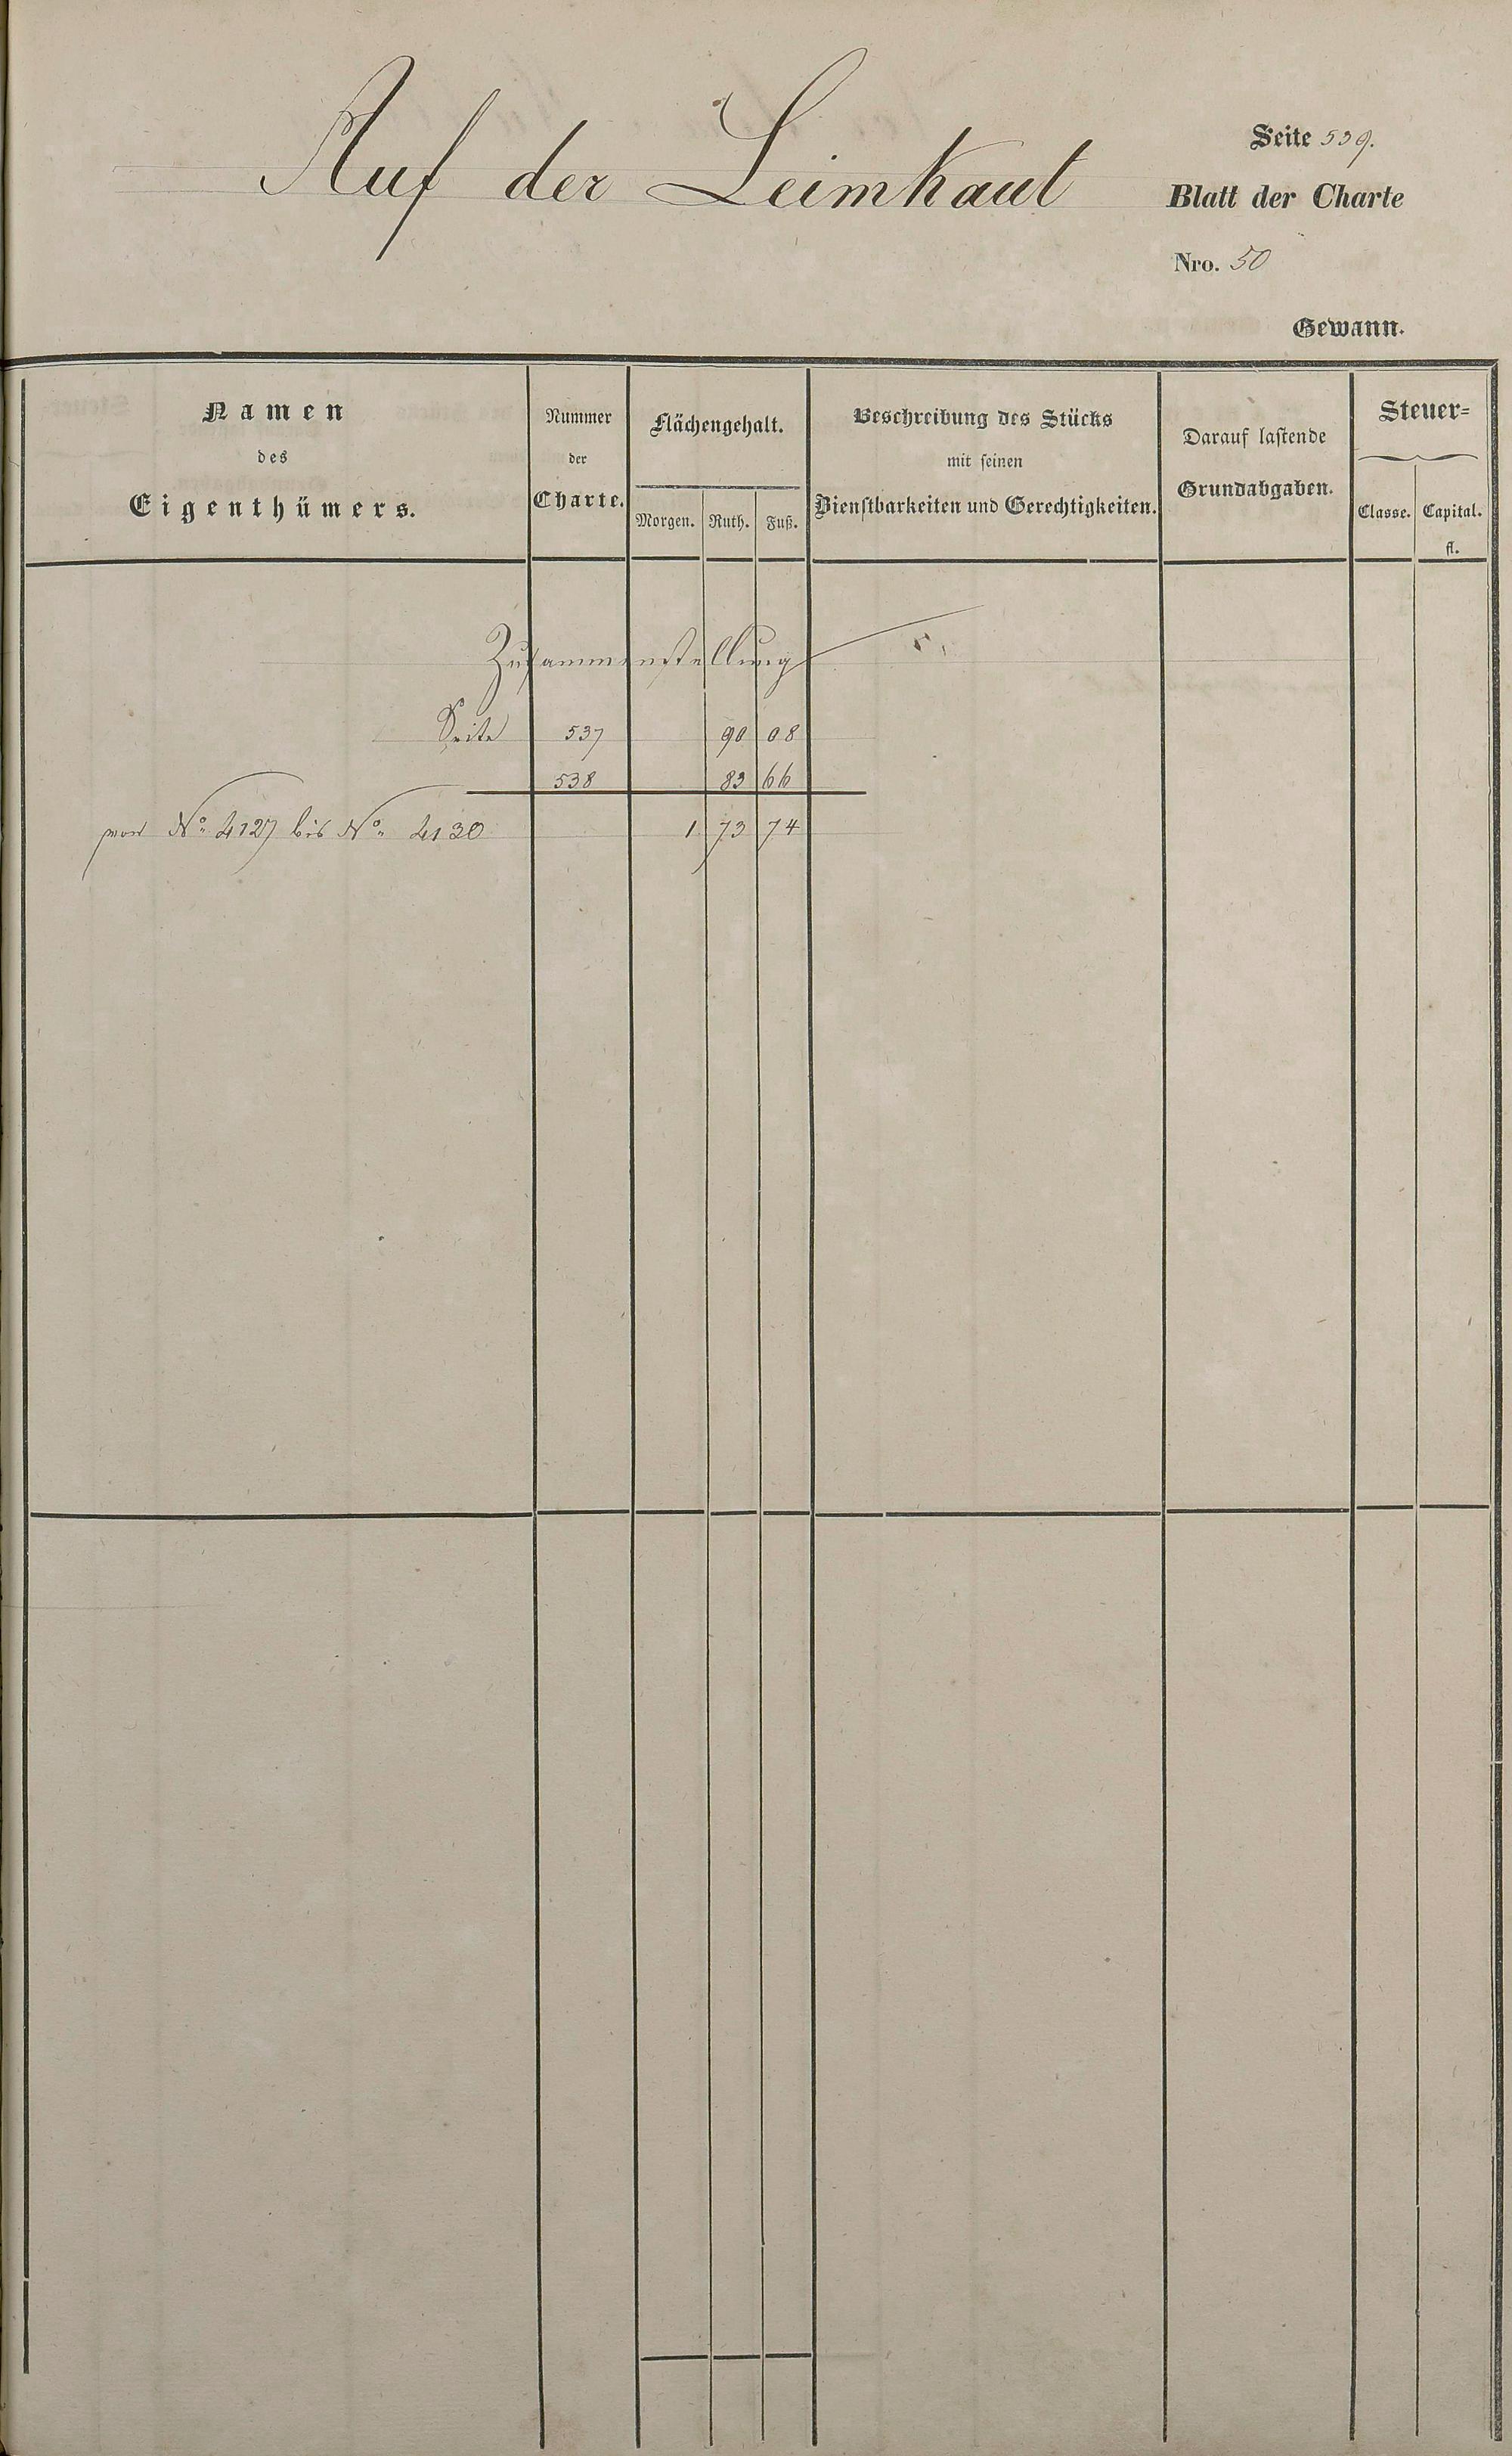 Auf der Leimkaut
Seite 539.
Blatt der Charte
Nro. 50
Gewann.
Namen
des
Eigenthümers.
Nummer
der
Charte.
Flächengehalt.
Morgen. Ruth. Fuß.
Beschreibung des Stücks
mit seinen
Dienstbarkeiten und Gerechtigkeiten.
Darauf lastende
Grundabgaben.
Steuer=
Classe. Capital.
fl.
Zusammenstellung
Seite 537 90 08
538 83 66
von No. 4127 bis No. 4130 1 73 74